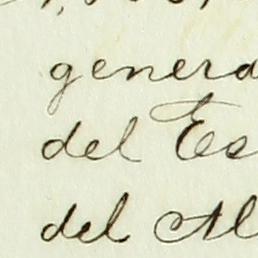 genera
del Es
del Al